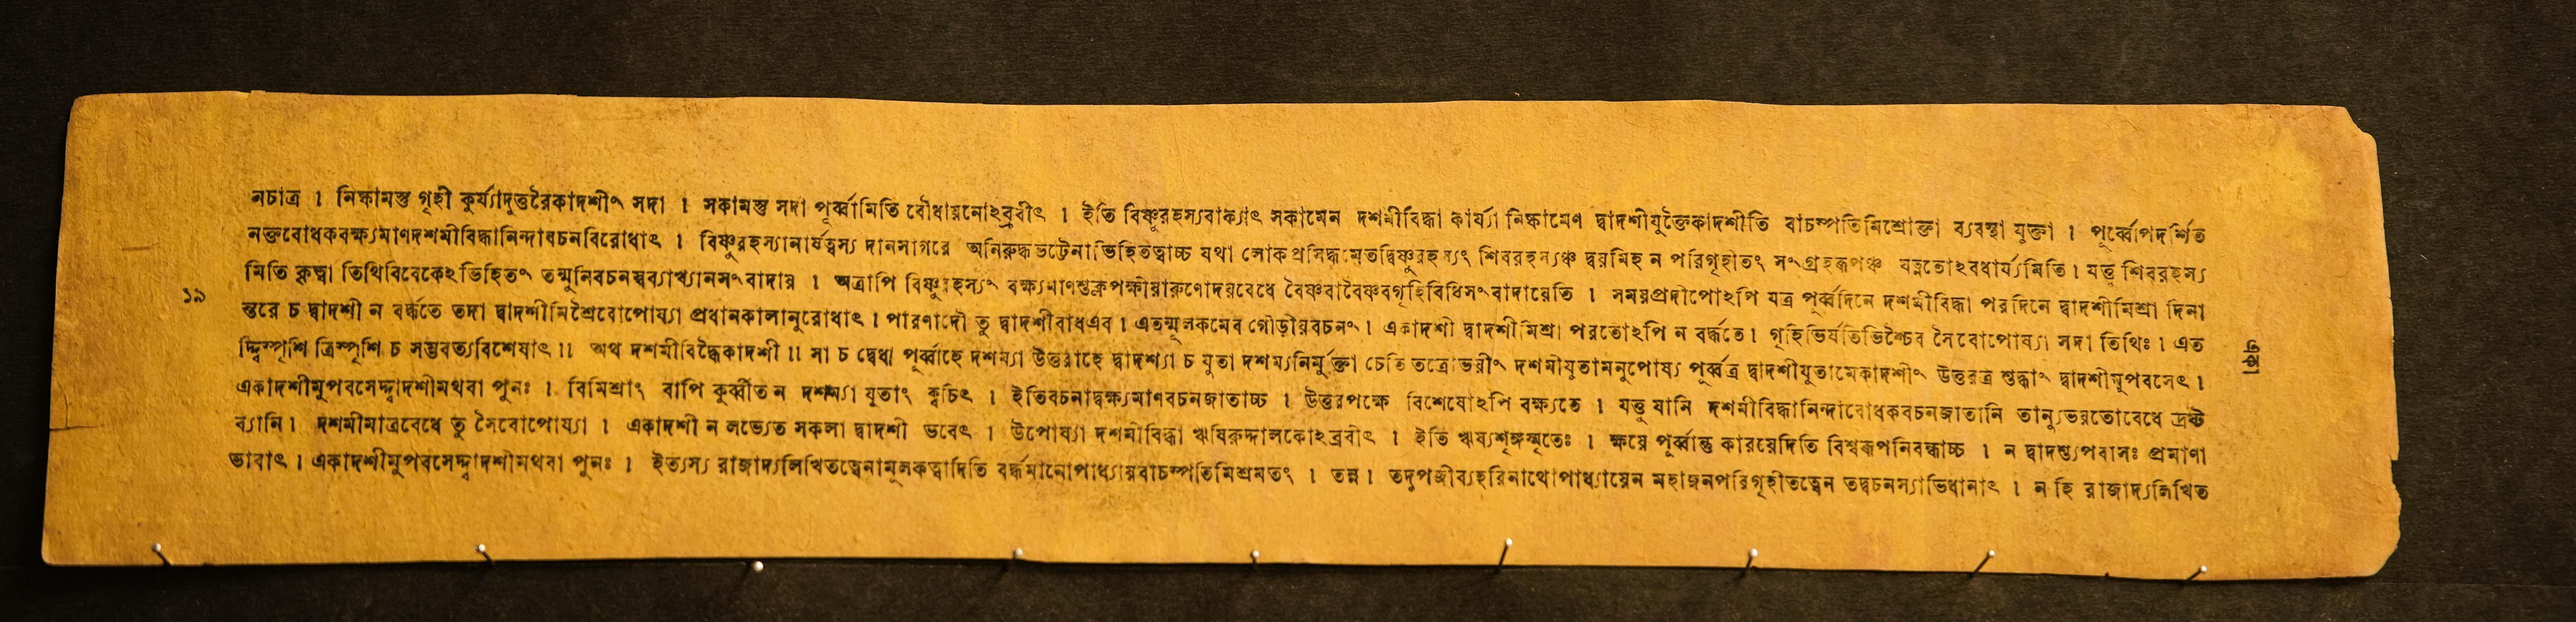 নচাত্র । নিষ্কামস্তু গৃহী কুর্য্যাদুত্তরৈকাদশীং সদা । সকামস্তু সদা পূর্ব্বামিতি বৌধায়নোঽব্রবীৎ । ইতি বিষ্ণুরহস্যবাক্যাৎ সকামেন দশমীবিদ্ধা কার্য্যা নিষ্কামেণ দ্বাদশীযুক্তৈকাদশীতি বাচস্পতিমিশ্রোক্তা ব্যবস্থা যুক্তা । পূর্ব্বোপদর্শিত
নক্তবোধকবক্ষ্যমাণদশমীবিদ্ধানিন্দাবচনবিরোধাৎ । বিষ্ণুরহস্যানার্ষত্বস্য দানসাগরে অনিরুদ্ধভট্টেনাভিহিতত্বাচ্চ যথা লোকপ্রসিদ্ধমেতদ্বিষ্ণুরহস্যং শিবরহস্যঞ্চ দ্বয়মিহ ন পরিগৃহীতং সংগ্রহরূপঞ্চ যত্নতোঽবধার্য্যমিতি । যত্তু শিবরহস্য
মিতি কৃত্বা তিথিবিবেকেঽভিহিতং তন্মুনিবচনস্বব্যাখ্যানসংবাদায় । অত্রাপি বিষ্ণুরহস্যং বক্ষ্যমাণশুক্লপক্ষীয়ারুণোদয়বেধে বৈষ্ণবাবৈষ্ণবগৃহিবিধিসংবাদায়েতি । সময়প্রদীপোঽপি যত্র পূর্ব্বদিনে দশমীবিদ্ধা পরদিনে দ্বাদশীমিশ্রা দিনা
১৯
ন্তরে চ দ্বাদশী ন বর্দ্ধতে তদা দ্বাদশীমিশ্রৈবোপোষ্যা প্রধানকালানুরোধাৎ । পারণাদৌ তু দ্বাদশীবাধএব । এতন্মূলকমেব গৌড়ীয়বচনং । একাদশী দ্বাদশীমিশ্রা পরতোঽপি ন বর্দ্ধতে । গৃহিভির্যতিভিশ্চৈব সৈবোপোষ্যা সদা তিথিঃ । এত
দ্দ্বিস্পৃশি ত্রিস্পৃশি চ সম্ভবত্যবিশেষাৎ ॥ অথ দশমীবিদ্ধৈকাদশী ॥ সা চ দ্বেধা পূর্ব্বাহে দশম্যা উত্তরাহে দ্বাদশ্যা চ যুতা দশম্যনির্মুক্তা চেতি তত্রোভয়ীং দশমীযুতামনুপোষ্য পূর্ব্বত্র দ্বাদশীযুতামেকাদশীং উত্তরত্র শুদ্ধাং দ্বাদশীমুপবসেৎ ।
একা
একাদশীমুপবসেদ্দ্বাদশীমথবা পুনঃ । বিমিশ্রাং বাপি কুর্ব্বীত ন দশম্যা যুতাং ক্বচিৎ । ইতিবচনাদ্বক্ষ্যমাণবচনজাতাচ্চ । উত্তরপক্ষে বিশেষোঽপি বক্ষ্যতে । যত্তু যানি দশমীবিদ্ধানিন্দাবোধকবচনজাতানি তান্যুভয়তোবেধে দ্রষ্ট
ব্যানি । দশমীমাত্রবেধে তু সৈবোপোষ্যা । একাদশী ন লভ্যেত সকলা দ্বাদশী ভবেৎ । উপোষ্যা দশমীবিদ্ধা ঋষিরুদ্দালকোঽব্রবীৎ । ইতি ঋষ্যশৃঙ্গস্মৃতেঃ । ক্ষয়ে পূর্ব্বান্তু কারয়েদিতি বিশ্বরূপনিবন্ধাচ্চ । ন দ্বাদশ্যুপবাসঃ প্রমাণা
ভাবাৎ । একাদশীমুপবসেদ্দ্বাদশীমথবা পুনঃ । ইত্যস্য রাজাদ্যলিখিতত্বেনামূলকত্বাদিতি বর্দ্ধমানোপাধ্যায়বাচস্পতিমিশ্রমতং । তন্ন । তদুপজীব্যহরিনাথোপাধ্যায়েন মহাজনপরিগৃহীতত্বেন তদ্বচনস্যাভিধানাৎ । ন হি রাজাদ্যলিখিত